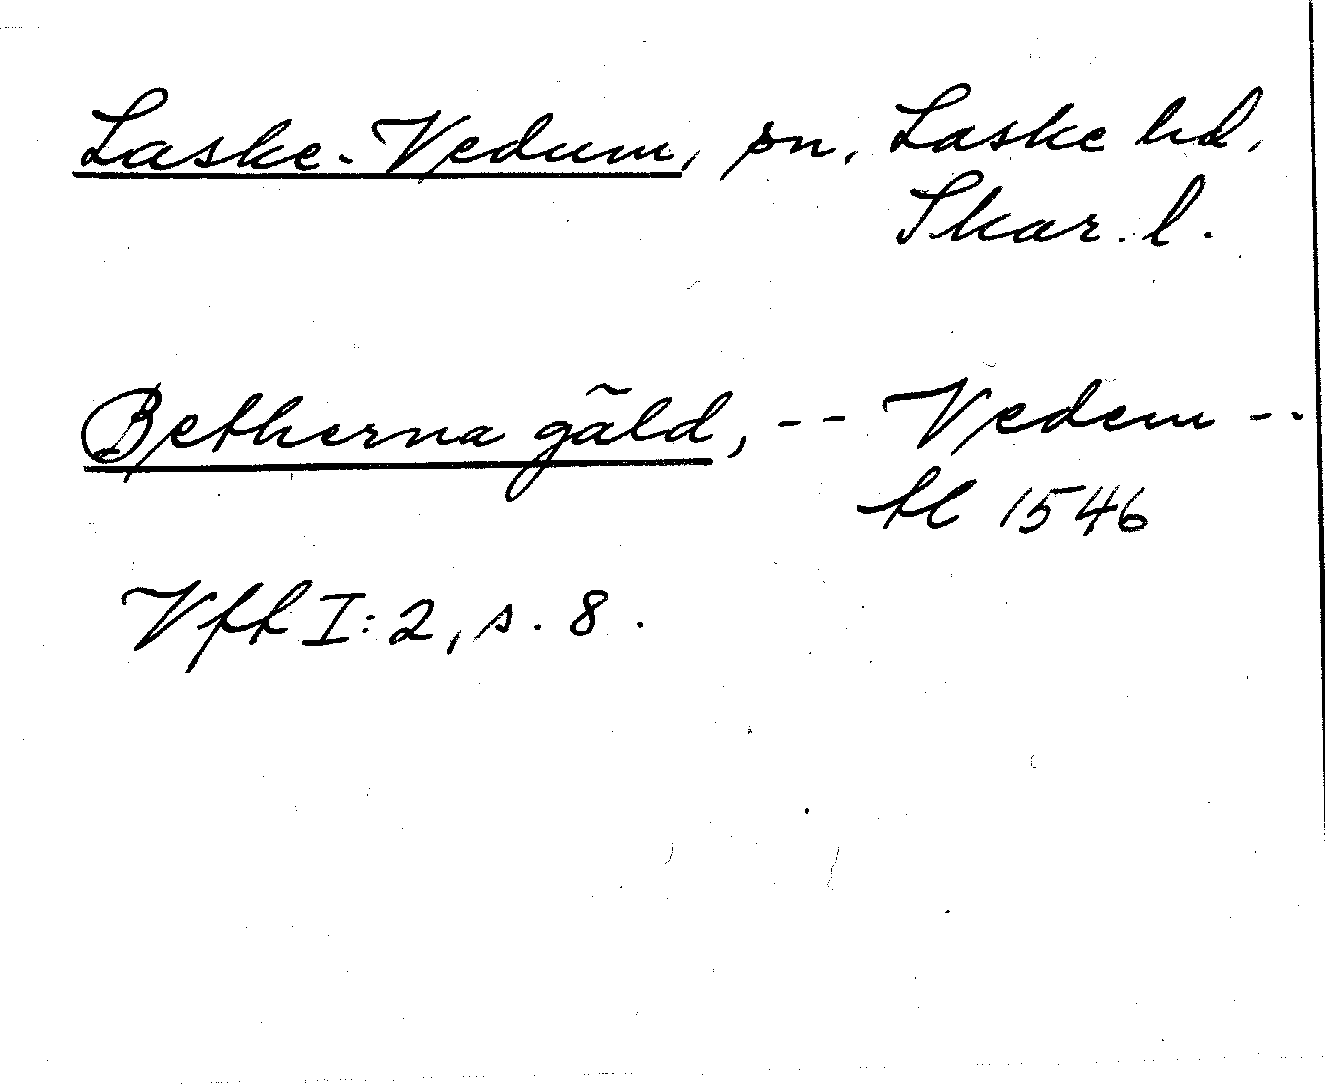 Laske-Vedum, sn, Laske hd,
Skar. l.
Betherna gäld, -- Vedem --
tl 1546
Vft I:2, s. 8.